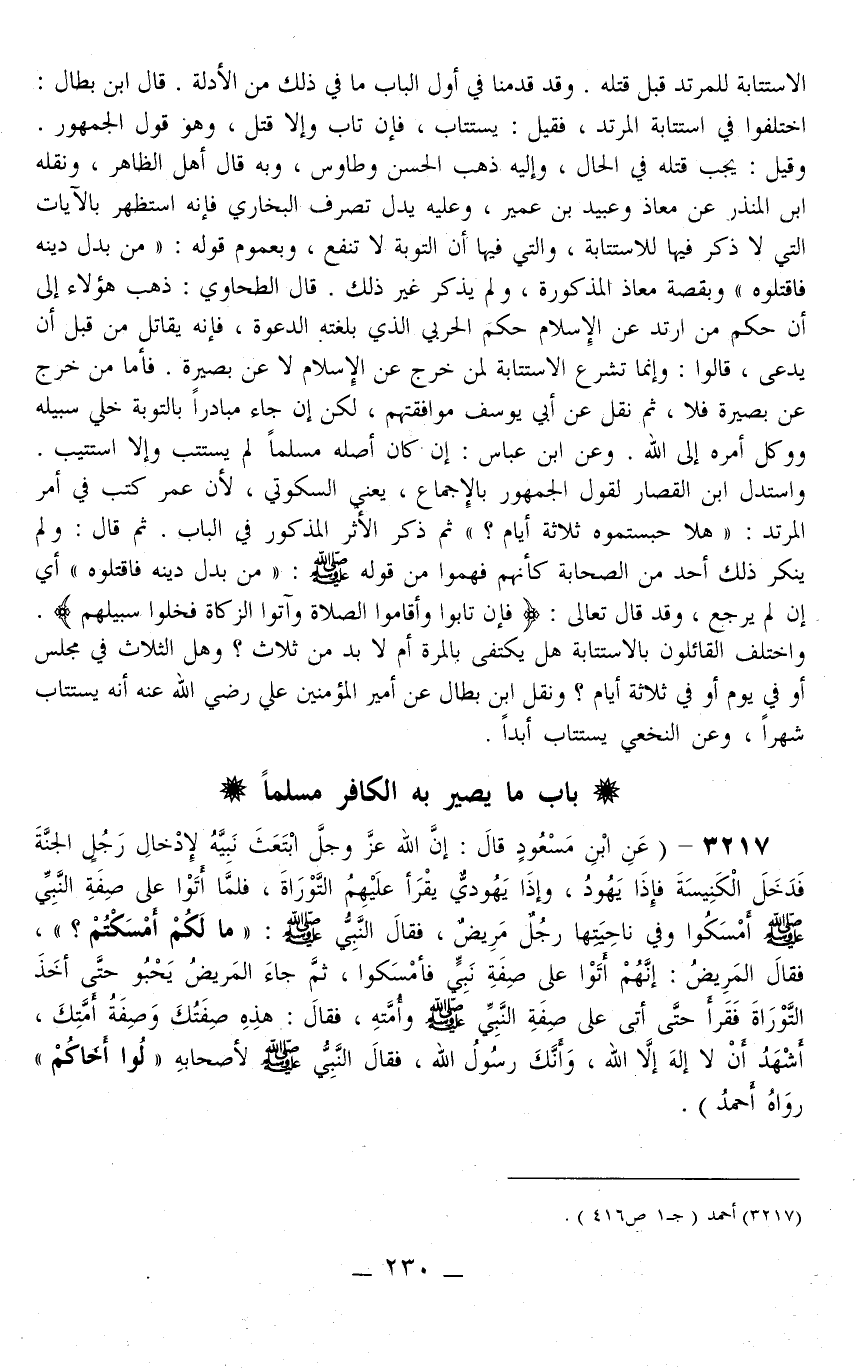 الاستتابة للمرتد قبل قتله . وقد قدمنا في أول الباب ما في ذلك من الأدلة . قال ابن بطال :
اختلفوا في استتابة المرتد ، فقيل : يستتاب ، فإن تاب وإلا قتل ، وهو قول الجمهور .
وقيل : يجب قتله في الحال ، وإليه ذهب الحسن وطاوس ، وبه قال أهل الظاهر ، ونقله
ابن المنذر عن معاذ وعبيد بن عمير ، وعليه يدل تصرف البخاري فإنه استظهر بالآيات
التي لا ذكر فيها للاستتابة ، والتي فيها أن التوبة لا تنفع ، وبعموم قوله : « من بدل دينه
فاقتلوه » وبقصة معاذ المذكورة ، ولم يذكر غير ذلك . قال الطحاوي : ذهب هؤلاء إلى
أن حكم من ارتد عن الإسلام حكم الحربي الذي بلغته الدعوة ، فإنه يقاتل من قبل أن
يدعى ، قالوا : وإنما تشرع الاستتابة لمن خرج عن الإسلام لا عن بصيرة . فأما من خرج
عن بصيرة فلا ، ثم نقل عن أبي يوسف موافقتهم ، لكن إن جاء مبادراً بالتوبة خلي سبيله
ووكل أمره إلى الله . وعن ابن عباس : إن كان أصله مسلماً لم يستتب وإلا استتيب .
واستدل ابن القصار لقول الجمهور بالإجماع ، يعني السكوتي ، لأن عمر كتب في أمر
المرتد : « هلا حبستموه ثلاثة أيام ؟ » ثم ذكر الأثر المذكور في الباب . ثم قال : ولم
ينكر ذلك أحد من الصحابة كأنهم فهموا من قوله ﷺ : « من بدل دينه فاقتلوه » أي
إن لم يرجع ، وقد قال تعالى : ﴿ فإن تابوا وأقاموا الصلاة وآتوا الزكاة فخلوا سبيلهم ﴾ .
واختلف القائلون بالاستتابة هل يكتفى بالمرة أم لا بد من ثلاث ؟ وهل الثلاث في مجلس
أو في يوم أو في ثلاثة أيام ؟ ونقل ابن بطال عن أمير المؤمنين علي رضي الله عنه أنه يستتاب
شهراً ، وعن النخعي يستتاب أبداً .
❋ باب ما يصير به الكافر مسلماً ❋
٣٢١٧ – ( عَنِ ابْنِ مَسْعُودٍ قالَ : إنَّ الله عزَّ وجلَّ ابْتَعَثَ نَبِيَّهُ لإِدْخالِ رَجُلٍ الجنَّةَ
فَدَخَلَ الْكَنِيسَةَ فإِذَا يَهُودُ ، وإذَا يَهُوديٌّ يقْرَأ علَيْهِمُ التَّوْرَاةَ ، فلمَّا أَتَوْا على صِفَةِ النَّبِيِّ
ﷺ أَمْسَكُوا وفي ناحِيَتِها رجُلٌ مَرِيضٌ ، فقالَ النَّبِيُّ ﷺ : « ما لَكُمْ أَمْسَكْتُمْ ؟ » ،
فقالَ المَرِيضُ : إنَّهُمْ أَتَوْا على صِفَةِ نَبِيٍّ فأمْسَكوا ، ثمَّ جاءَ المَريضُ يَحْبُو حتَّى أخَذَ
التَّوْرَاةَ فَقَرأَ حتَّى أتى على صِفَةِ النَّبِيِّ ﷺ وأُمَّتِهِ ، فقالَ : هذِهِ صِفَتُكَ وَصِفَةُ أمَّتِكَ ،
أَشْهَدُ أَنْ لا إلهَ إلَّا الله ، وَأَنَّكَ رسُولُ الله ، فقالَ النَّبِيُّ ﷺ لأصحابهِ « لُوا أَخَاكُمْ »
روَاهُ أحمدُ ) .
(٣٢١٧) أحمد ( جـ١ ص٤١٦ ) .
_ ٢٣٠ _